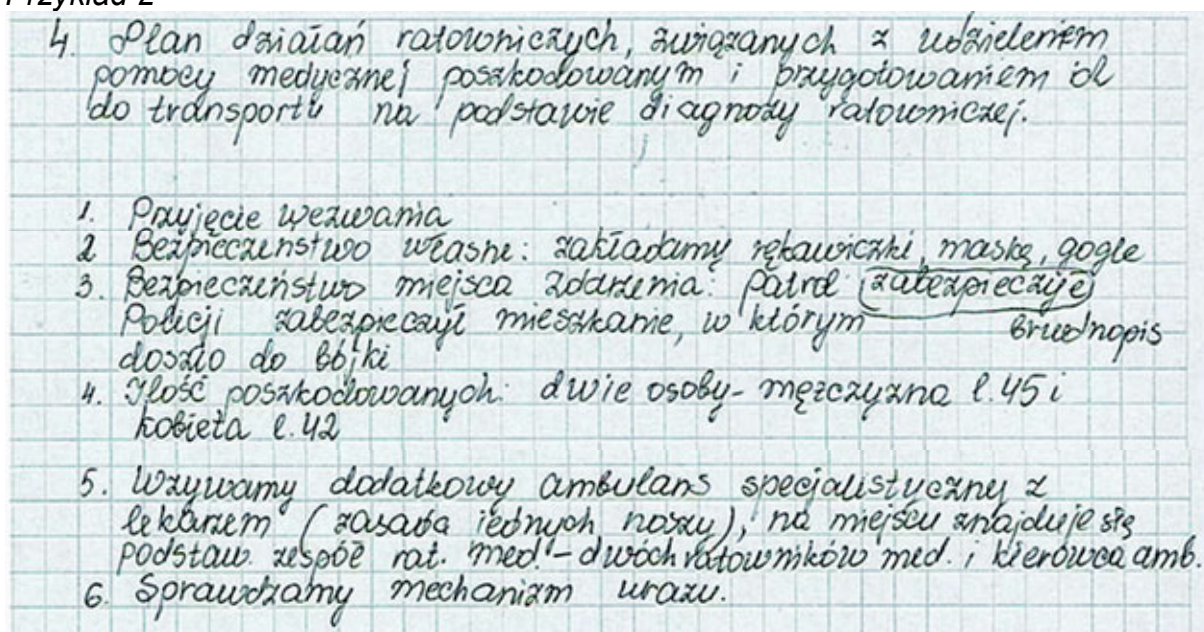 Przykład 2
4. Plan działań ratowniczych, związanych z udzieleniem
pomocy medycznej poszkodowanym i przygotowaniem ich
do transportu na podstawie diagnozy ratowniczej.
1. Przyjęcie wezwania
2 Bezpieczeństwo własne: zakładamy rękawiczki, maskę, gogle
3. Bezpieczeństwo miejsca zdarzenia: Patrol (zabezpieczyć)
Policji zabezpieczył mieszkanie, w którym brudnopis
doszło do bójki
4. Ilość poszkodowanych: dwie osoby - mężczyzna l.45 i
kobieta l.42
5. Wzywamy dodatkowy ambulans specjalistyczny z
lekarzem (zasada jednych noszy), na miejscu znajduje się
podstaw. zespół rat. med. - dwóch ratowników med. i kierowca amb.
6. Sprawdzamy mechanizm urazu.